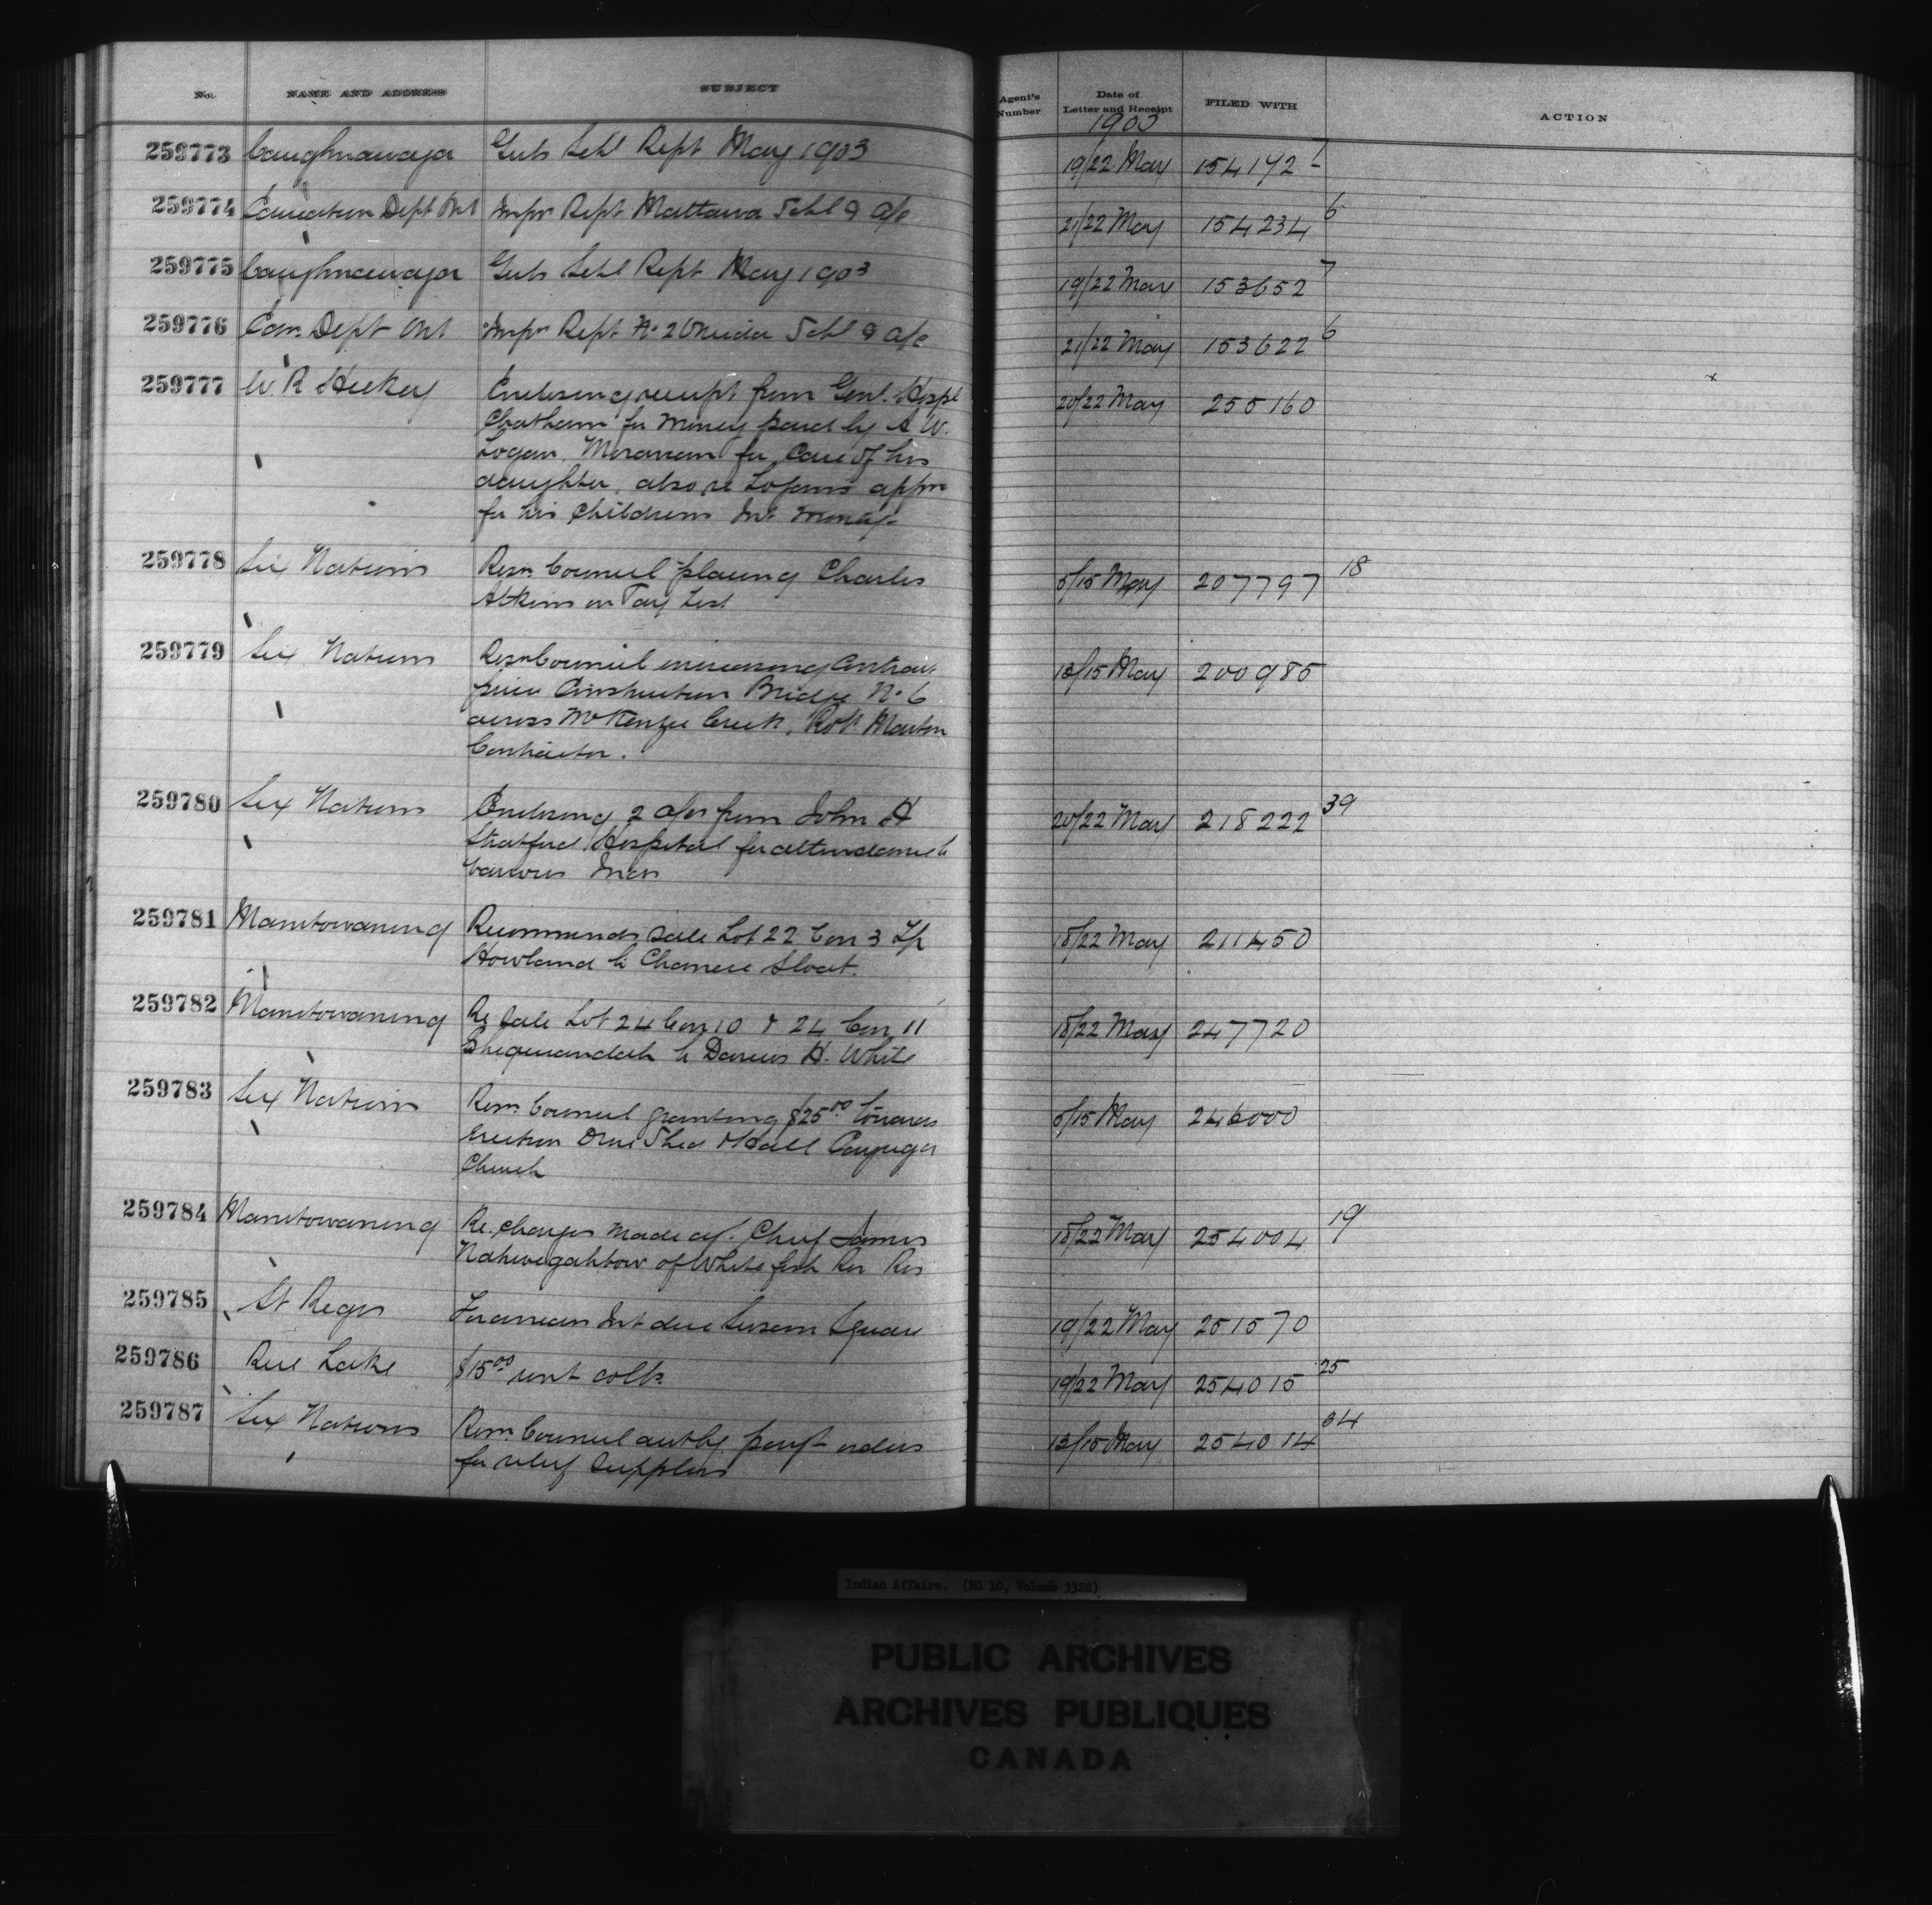 No. NAME AND ADDRESS SUBJECT Agent's Number Date of Letter and Receipt FILED WITH ACTION
1903
259773 Caughnawaga Girls Schl Rept May 1903 19/22 May 154142
259774 Education Dept Ont Inspr Rept Mattawa Schl & a/c 21/22 May 154234 6
259775 Caughnawaga Girls Schl Rept May 1903 19/22 May 153652 7
259776 Edn. Dept Ont Inspr Rept No 2 Oneida Schl & a/c 21/22 May 153622 6
259777 W. R. Hickey Enclosing receipt from Genl. Hospl 20/22 May 255160
Chatham for money paid by A W.
Logan, Moravian for Care of his
daughter, also re Logan's appn
for his Childrens Int money
259778 Six Nations Resn Council placing Charles 5/15 May 207797 18
Atkins on Pay List
259779 Six Nations Resn Council increasing Contract 13/15 May 200985
price Construction Bridge No 6
across McKenzie Creek, Robt Martin
Contractor.
259780 Six Nations Enclosing 2 a/cs from John H 20/22 May 218222 39
Stratford Hospital for attendance to
various Inds
259781 Manitowaning Recommends sale Lot 22 Con 3 Tp 18/22 May 211450
Howland to Sloat.
259782 Manitowaning Re Sale Lot 24 Con 10 & 24 Con 11 18/22 May 247720
Sheguiandah to Darius H. White
259783 Six Nations Resn Council granting $25.00 towards 5/15 May 246000
Erection Drive Shed Cayuga
Church
259784 Manitowaning Re. Charges made agt. Chief James 18/22 May 254004 19
Nahwegahbow of White fish Riv Res
259785 St Regis Int due Square 19/22 May 251570
259786 Rice Lake $15.00 rent colln 19/22 May 254015 25
259787 Six Nations Resn Council authg payt orders 13/15 May 254014 34
for relief supplies
Indian Affairs. (RG 10, Volume 3328)
PUBLIC ARCHIVES
ARCHIVES PUBLIQUES
CANADA